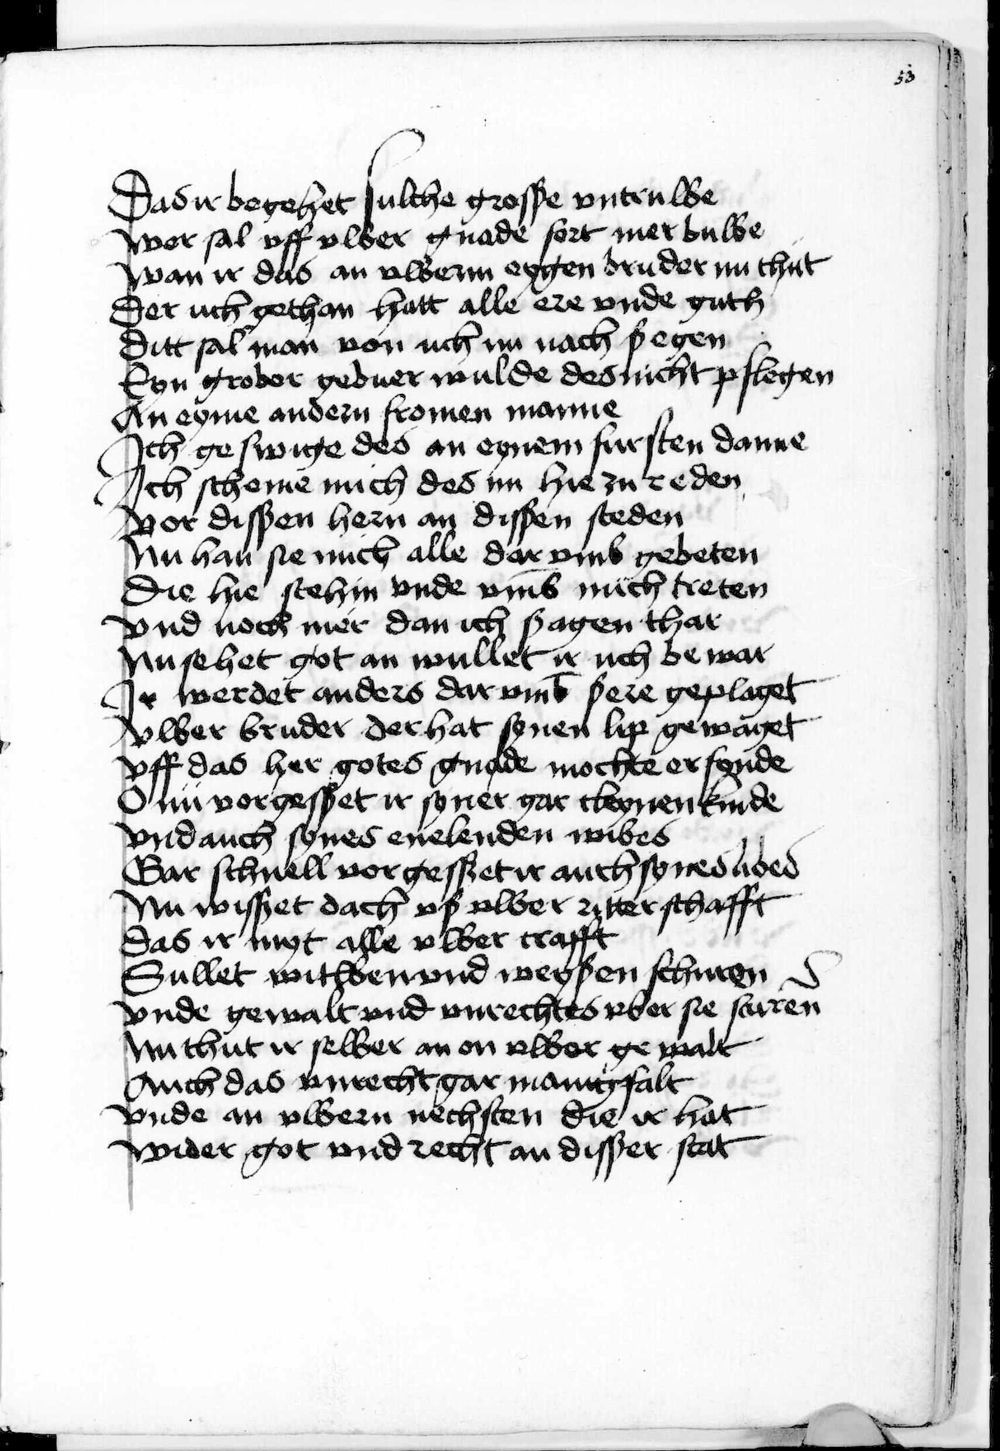 53
Das ir begehet sulche grosße vntruwe
Wer sal vff vwer gnade fort mer buwe
Wan ir das an vwerm eygen bruder nu thut
Der uch gethan hatt alle ere vnde guth
Ditt sal man von uch nu nach ßegen
Eyn grober gebuer wulde des nicht pflegen
An eyme andern fromen manne
Ich geswige des an eynem fursten danne
Ich scheme mich des nu hie zu reden
Vor dißen hern an dißen steden
Nu han sie mich alle dar vmb gebeten
Die hie stehin vnde vmb mich treten
Vnd noch mer dan ich ßagen thar
Nu sehet got an wullet ir uch bewar
Ir werdet anders dar vmb ßere geplaget
Vwer bruder der hat synen lip gewaget
Vff das her gotes gnade mochte erfynde
O nu vorgeßet ir syner gar cleynen kinde
Vnd auch synes enelenden wibes
Gar schnell vorgeßet ir auch synes libes
Nu wißet dach vß vwer ritterschafft
Das ir myt alle vwer crafft
Sullet witwen vnd weyßen schuren
Vnde gewalt vnd vnrechtes vber sie sturen
Nu thut ir selber an on vwer gewalt
Auch das vnrecht gar manigfalt
Vnde an vwern nechsten die ir hat
Wider got vnd recht an dißer stat